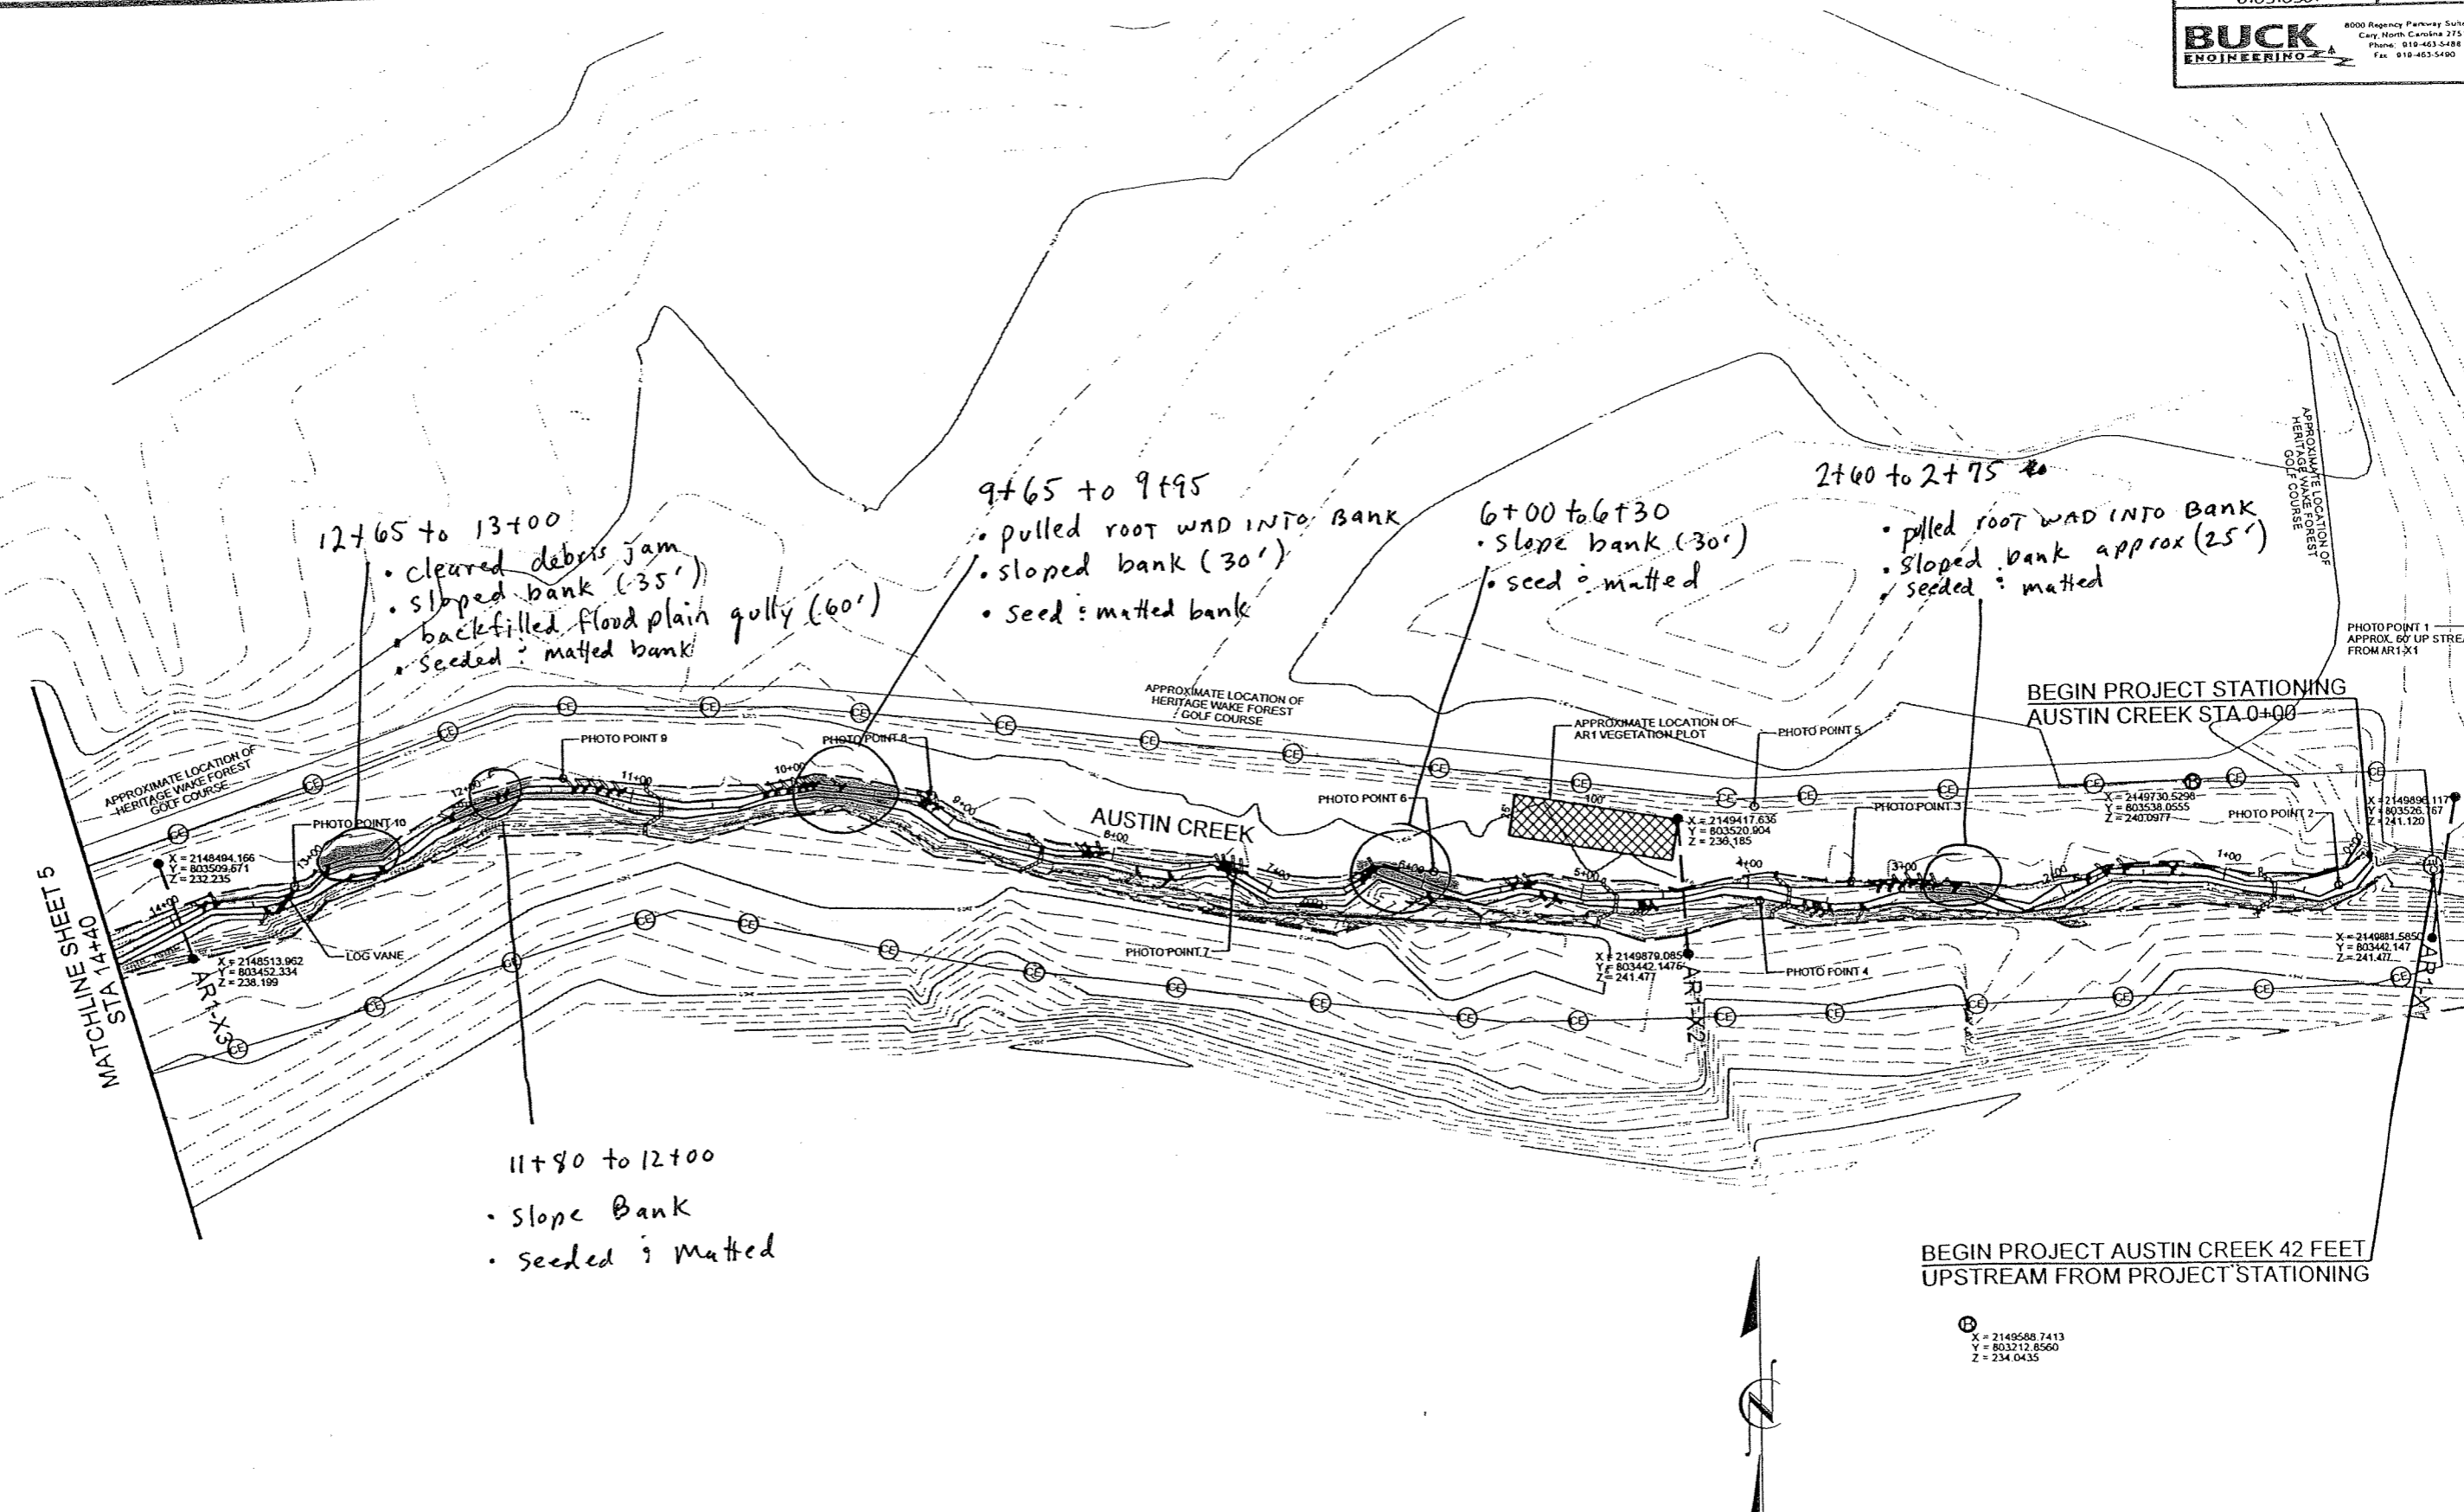 BUCK
ENGINEERING
8000 Regency Parkway
Cary, North Carolina
Phone: 919-463-5488
Fax: 919-463-5490
12+65 to 13+00
• cleared debris jam
• sloped bank (35')
• backfilled flood plain gully (60')
• seeded & matted bank
9+65 to 9+95
• pulled root wad into Bank
• sloped bank (30')
• seed & matted bank
6+00 to 6+30
• slope bank (30')
• seed & matted
2+60 to 2+75
• pulled root wad into Bank
• sloped bank approx (25')
• seeded & matted
APPROXIMATE LOCATION OF
HERITAGE WAKE FOREST
GOLF COURSE
PHOTO POINT 1
APPROX. 60' UP
FROM AR1-X1
BEGIN PROJECT STATIONING
AUSTIN CREEK STA 0+00
APPROXIMATE LOCATION OF
HERITAGE WAKE FOREST
GOLF COURSE
APPROXIMATE LOCATION OF
AR1 VEGETATION PLOT
PHOTO POINT 5
PHOTO POINT 9
PHOTO POINT 8
APPROXIMATE LOCATION OF
HERITAGE WAKE FOREST
GOLF COURSE
PHOTO POINT 10
PHOTO POINT 6
PHOTO POINT 3
PHOTO POINT 2
100'
AUSTIN CREEK
X = 2149730.5298
Y = 803538.0555
Z = 240.0977
X = 2149896.117
Y = 803526.167
Z = 241.120
X = 2149417.636
Y = 803520.904
Z = 236.185
X = 2148494.166
Y = 803509.671
Z = 232.235
14+00
13+00
12+00
11+00
10+00
9+00
8+00
7+00
6+00
5+00
4+00
3+00
2+00
1+00
0+00
MATCHLINE SHEET 5
STA 14+40
X = 2148513.962
Y = 803452.334
Z = 238.199
AR1-X3
LOG VANE
PHOTO POINT 7
X = 2149879.085
Y = 803442.1476
Z = 241.477
AR1-X2
PHOTO POINT 4
X = 2149881.5850
Y = 803442.147
Z = 241.477
AR1-X1
CE
11+80 to 12+00
• slope Bank
• seeded & Matted
BEGIN PROJECT AUSTIN CREEK 42 FEET
UPSTREAM FROM PROJECT STATIONING
X = 2149588.7413
Y = 803212.8560
Z = 234.0435
N